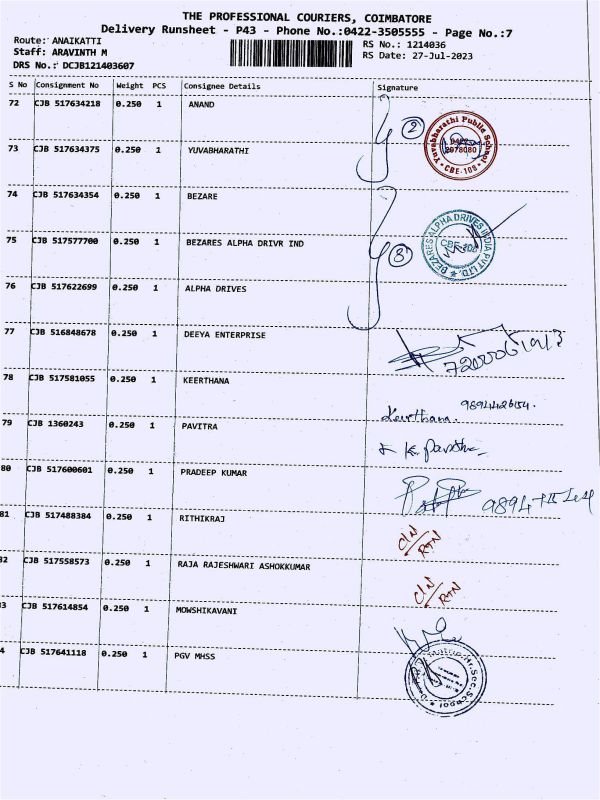 THE PROFESSIONAL COURIERS, COIMBATORE
Delivery Runsheet - P43 - Phone No.:0422-3505555 - Page No.:7
Route: ANAIKATTI
RS No.: 1214036
Staff: ARAVINTH M
RS Date: 27-Jul-2023
DRS No.: DCJB121403607
S No Consignment No Weight PCS Consignee Details Signature
72 CJB 517634218 0.250 1 ANAND
2
Yuvabharathi Public School
2678080
CBE-108
73 CJB 517634375 0.250 1 YUVABHARATHI
74 CJB 517634354 0.250 1 BEZARE
BEZARES ALPHA DRIVES INDIA PVT LTD.
3
75 CJB 517577700 0.250 1 BEZARES ALPHA DRIVR IND
76 CJB 517622699 0.250 1 ALPHA DRIVES
77 CJB 516848678 0.250 1 DEEYA ENTERPRISE
78 CJB 517581055 0.250 1 KEERTHANA
Keerthana.
79 CJB 1360243 0.250 1 PAVITRA
80 CJB 517600601 0.250 1 PRADEEP KUMAR
9894
81 CJB 517488384 0.250 1 RITHIKRAJ
C/N
RTN
32 CJB 517558573 0.250 1 RAJA RAJESHWARI ASHOKKUMAR
C/N
RTN
3 CJB 517614854 0.250 1 MOWSHIKAVANI
4 CJB 517641118 0.250 1 PGV MHSS
Hr.Sec.School